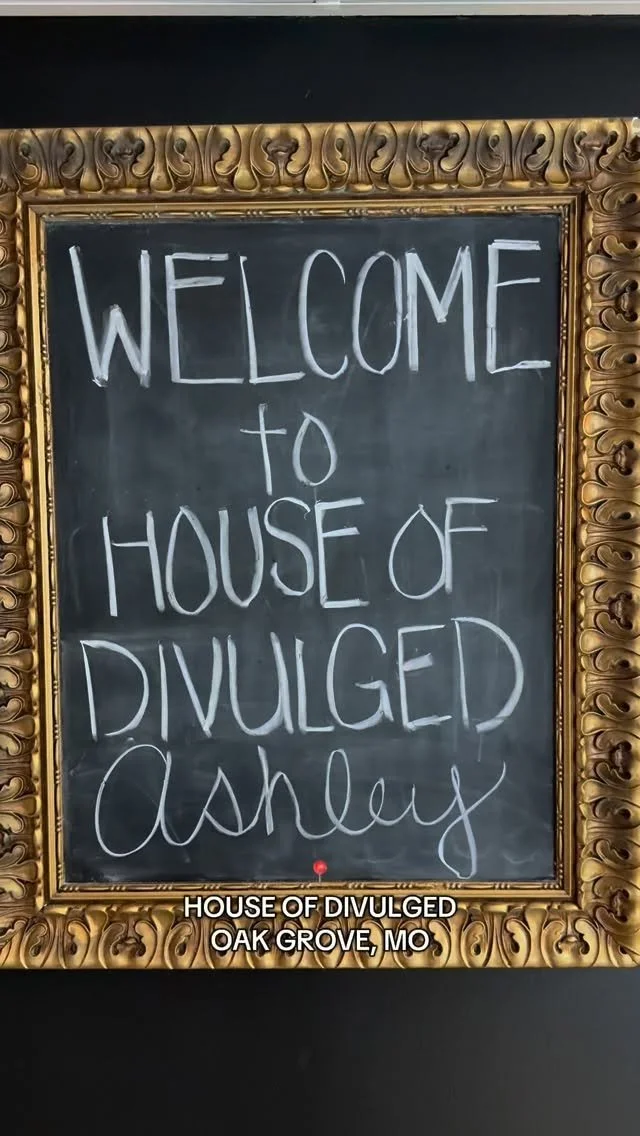 WELCOME
to
HOUSE OF
DIVULGED
Ashley
HOUSE OF DIVULGED
OAK GROVE, MO